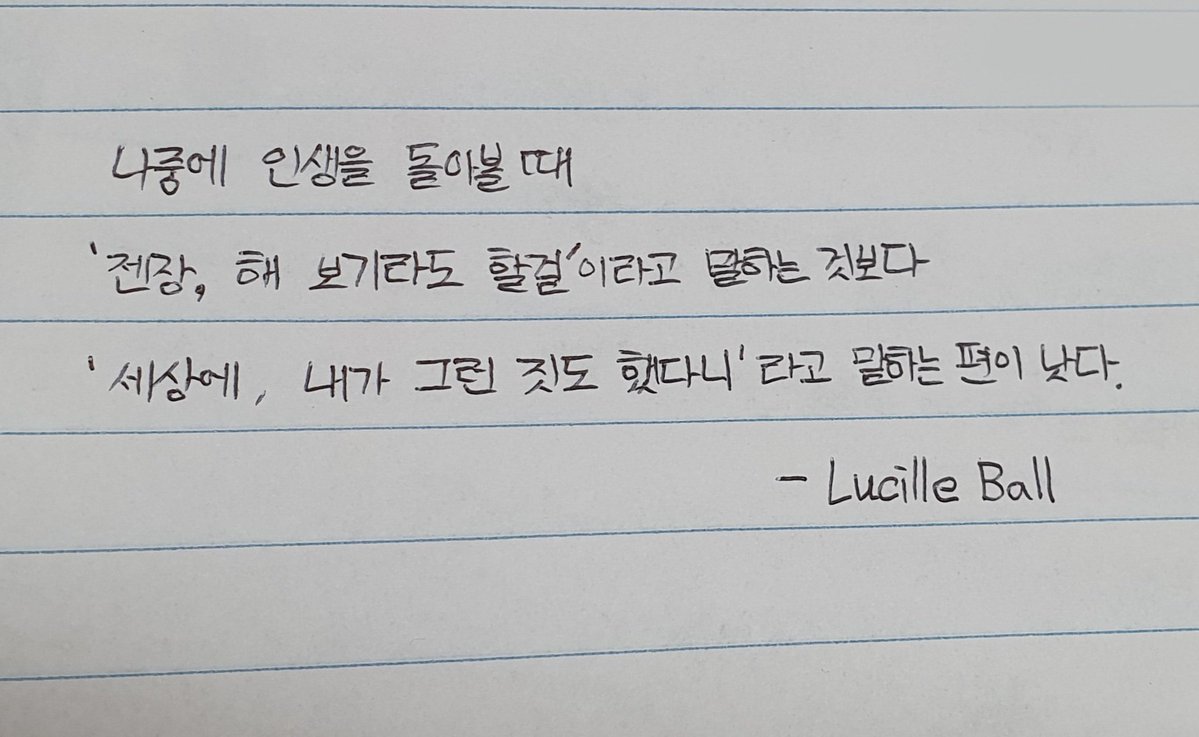 나중에 인생을 돌아볼 때
'젠장, 해 보기라도 할걸'이라고 말하는 것보다
'세상에, 내가 그런 짓도 했다니'라고 말하는 편이 낫다.
- Lucille Ball